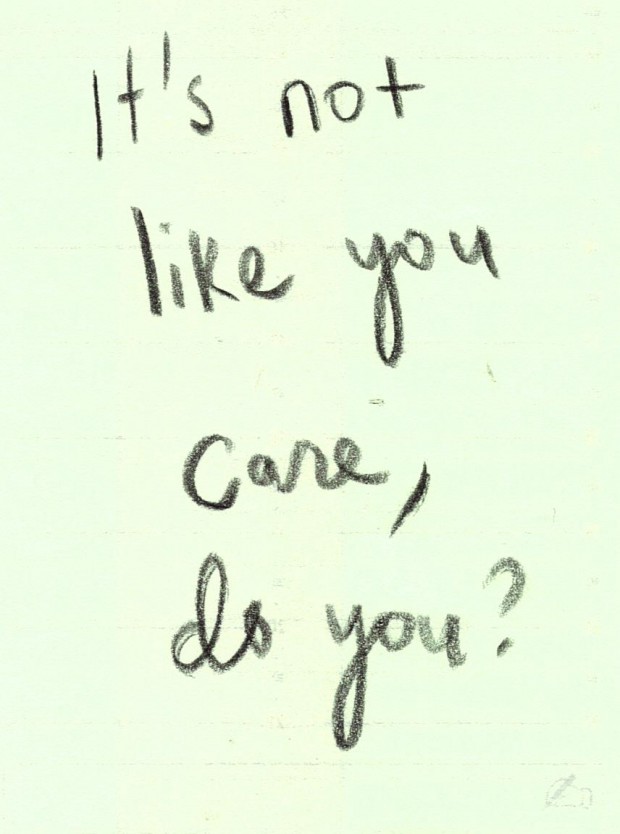 It's not
like you
care,
do you?